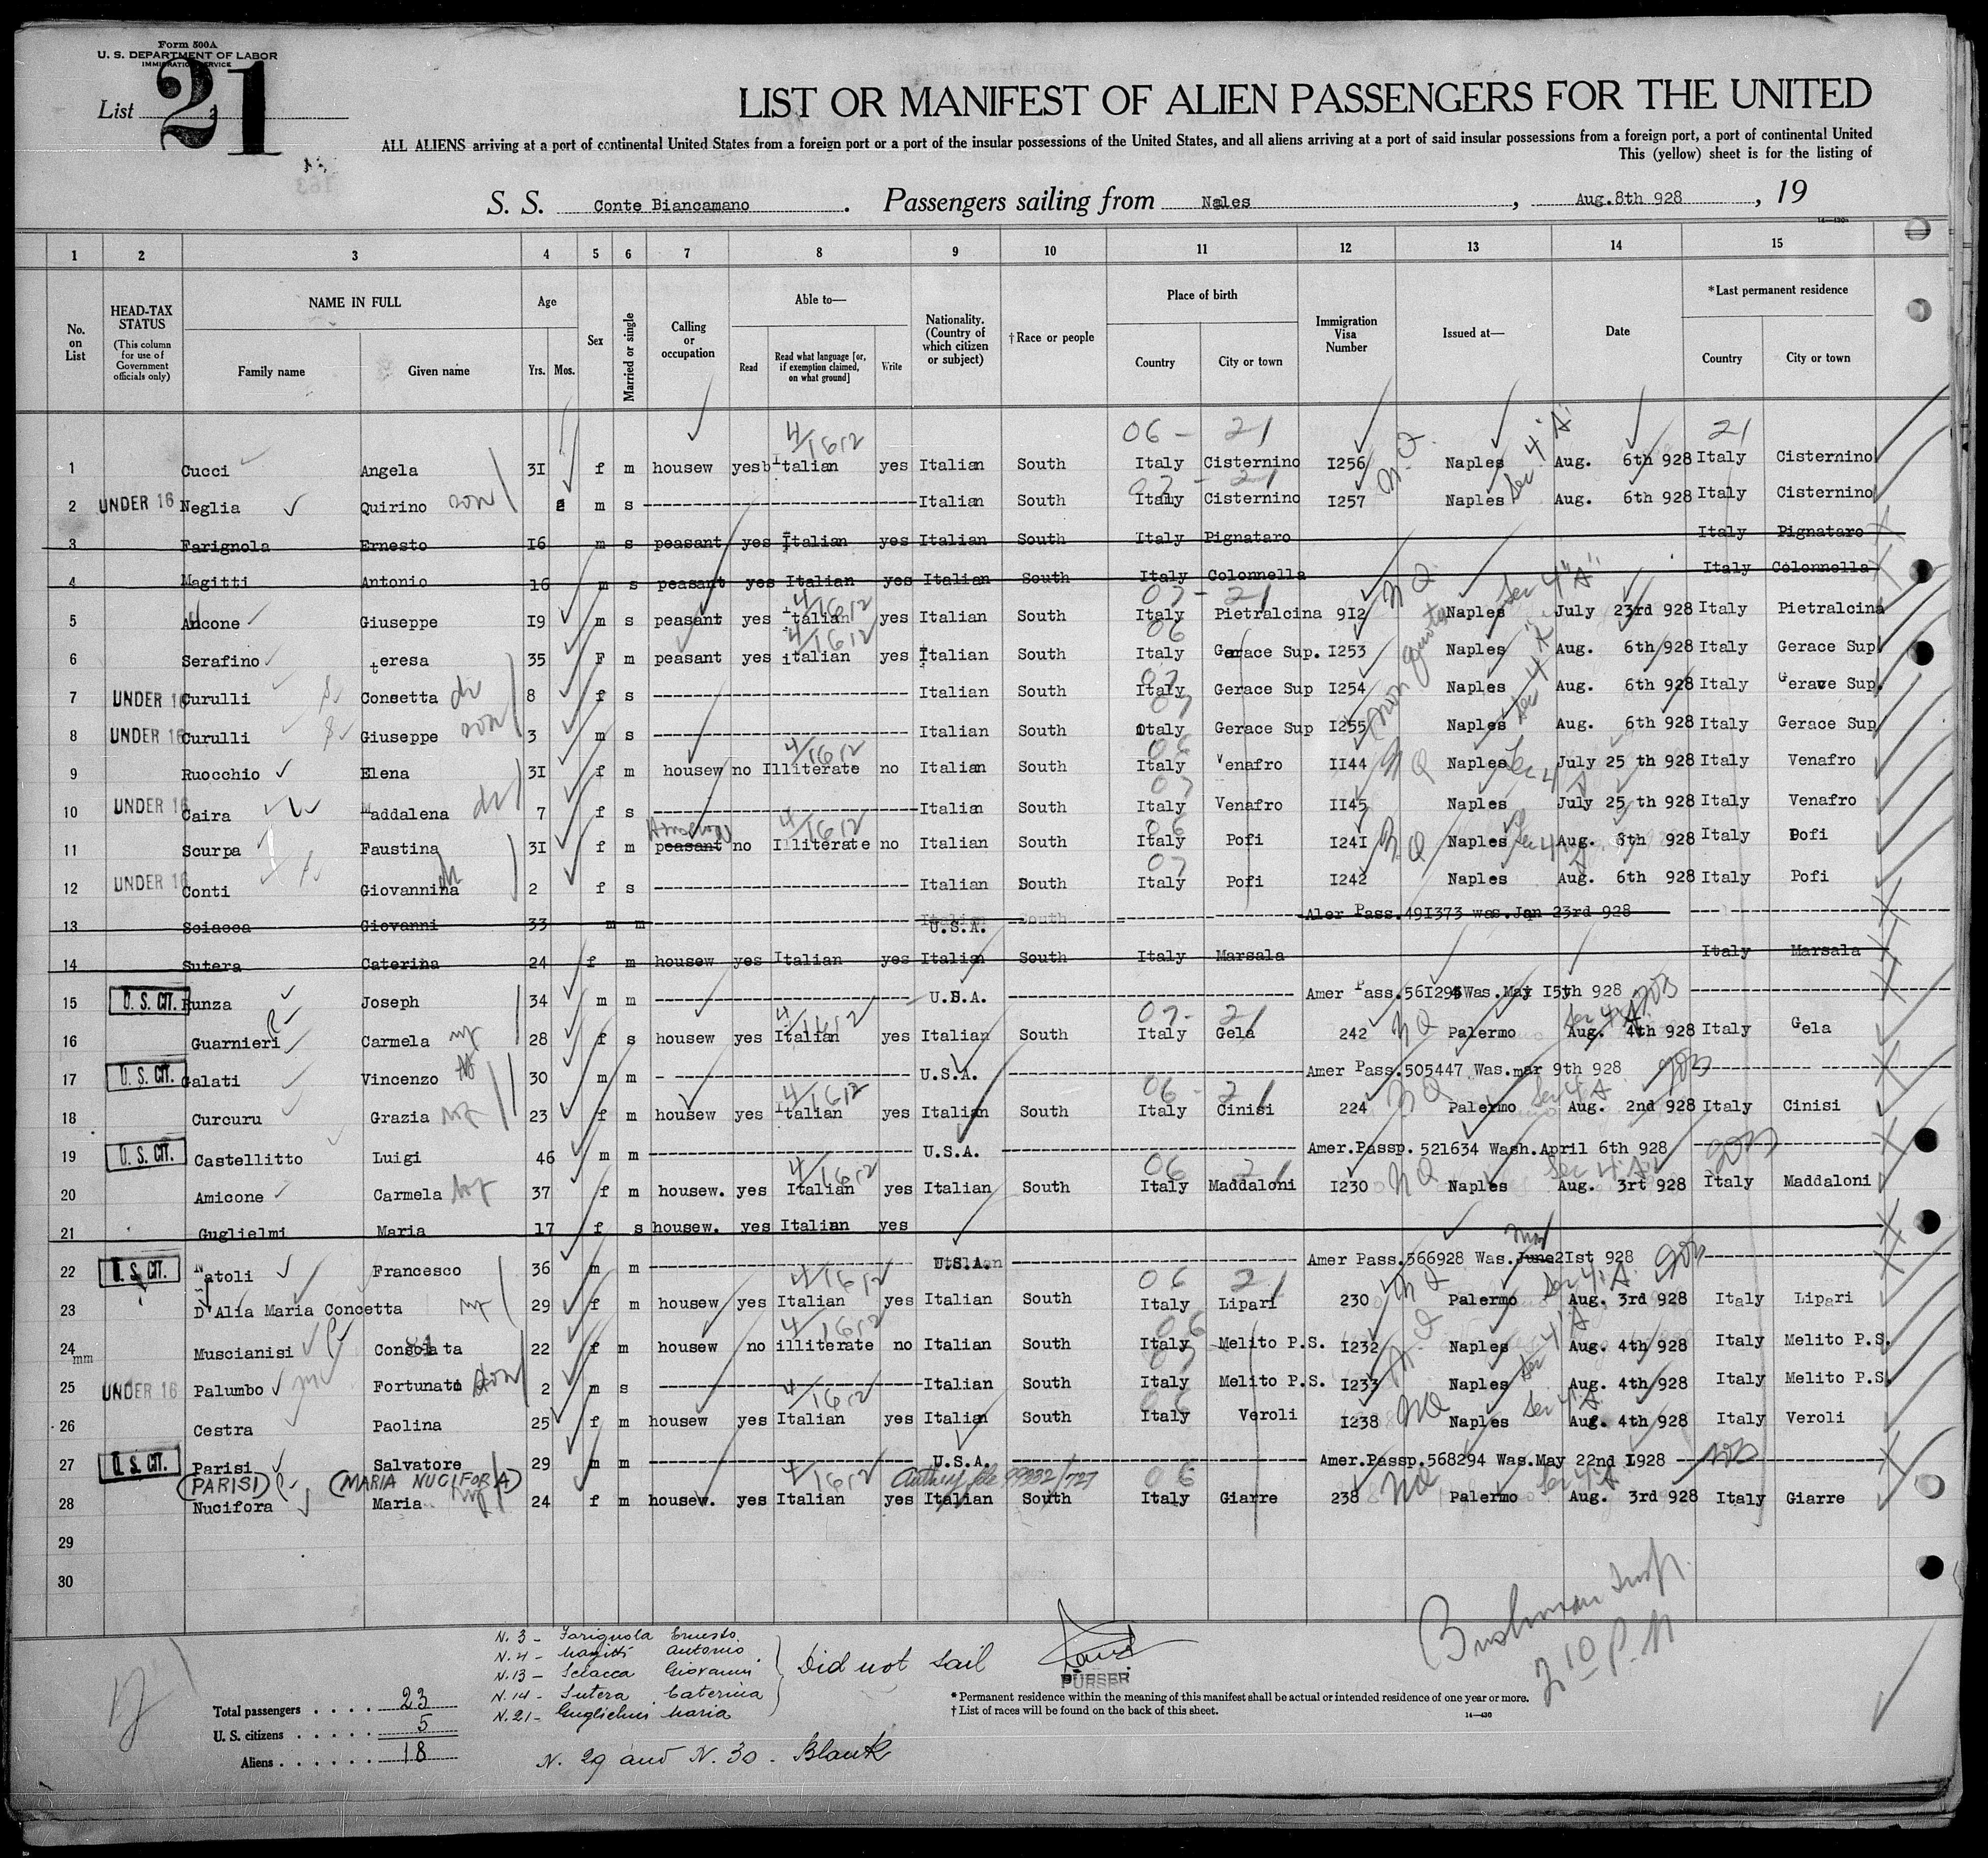 Form 500A
U. S. DEPARTMENT OF LABOR
IMMIGRATION SERVICE
List 21
LIST OR MANIFEST OF ALIEN PASSENGERS FOR THE UNITED
ALL ALIENS arriving at a port of continental United States from a foreign port or a port of the insular possessions of the United States, and all aliens arriving at a port of said insular possessions from a foreign port, a port of continental United
This (yellow) sheet is for the listing of
S. S. Conte Biancamano. Passengers sailing from Nales, Aug.8th 928, 19
1 2 3 4 5 6 7 8 9 10 11 12 13 14 15
No. on List
HEAD-TAX STATUS (This column for use of Government officials only)
NAME IN FULL Family name Given name
Age Yrs. Mos.
Sex
Married or single
Calling or occupation
Able to— Read Read what language [or, if exemption claimed, on what ground] Write
Nationality. (Country of which citizen or subject)
†Race or people
Place of birth Country City or town
Immigration Visa Number
Issued at—
Date
*Last permanent residence Country City or town
06 - 21 21
1 Cucci Angela 3I f m housew yes Italian yes Italian South Italy Cisternino I256 Naples Aug. 6th 928 Italy Cisternino
2 UNDER 16 Neglia Quirino son m s Italian South Italy Cisternino I257 Naples Aug. 6th 928 Italy Cisternino
3 Farignola Ernesto I6 m s peasant yes Italian yes Italian South Italy Pignataro Italy Pignataro
4 Magitti Antonio 16 m s peasant yes Italian yes Italian South Italy Colonnella Italy Colonnella
5 Ancone Giuseppe I9 m s peasant yes Italian yes Italian South Italy Pietralcina 9I2 Naples July 23rd 928 Italy Pietralcina
6 Serafino teresa 35 F m peasant yes italian yes Italian South Italy Gerace Sup. I253 Naples Aug. 6th 928 Italy Gerace Sup
7 UNDER 16 Curulli Consetta 8 f s Italian South Italy Gerace Sup I254 Naples Aug. 6th 928 Italy Gerave Sup.
8 UNDER 16 Curulli Giuseppe son 3 m s Italian South Italy Gerace Sup I255 Naples Aug. 6th 928 Italy Gerace Sup
9 Ruocchio Elena 3I f m housew no Illiterate no Italian South Italy Venafro II44 Naples July 25 th 928 Italy Venafro
10 UNDER 16 Caira Maddalena 7 f s Italian South Italy Venafro II45 Naples July 25 th 928 Italy Venafro
11 Scurpa Faustina 3I f m peasant no Illiterate no Italian South Italy Pofi I24I Naples Aug. 6th 928 Italy Pofi
12 UNDER 16 Conti Giovannina 2 f s Italian South Italy Pofi I242 Naples Aug. 6th 928 Italy Pofi
13 Sciacca Giovanni 33 m m U.S.A. Aler Pass.49I373 was.Jan 23rd 928
14 Sutera Caterina 24 f m housew yes Italian yes Italian South Italy Marsala Italy Marsala
15 U. S. CIT. Runza Joseph 34 m m U.S.A. Amer Pass. Was.May I5th 928
16 Guarnieri Carmela 28 f s housew yes Italian yes Italian South Italy Gela 242 Palermo Aug. 4th 928 Italy Gela
17 U. S. CIT. Galati Vincenzo 30 m m U.S.A. Amer Pass.505447 Was.mar 9th 928
18 Curcuru Grazia 23 f m housew yes Italian yes Italian South Italy Cinisi 224 Palermo Aug. 2nd 928 Italy Cinisi
19 U. S. CIT. Castellitto Luigi 46 m m U.S.A. Amer.Passp. 521634 Wash.April 6th 928
20 Amicone Carmela 37 f m housew. yes Italian yes Italian South Italy Maddaloni I230 Naples Aug. 3rt 928 Italy Maddaloni
21 Guglielmi Maria 17 f s housew. yes Italian yes
22 U. S. CIT. Natoli Francesco 36 m m U.S.A. Amer Pass.566928 Was.June 2Ist 928
23 D'Alia Maria Concetta 29 f m housew yes Italian yes Italian South Italy Lipari 230 Palermo Aug. 3rd 928 Italy Lipari
24 mm Muscianisi Consolata 22 f m housew no illiterate no Italian South Italy Melito P.S. I232 Naples Aug. 4th 928 Italy Melito P.S.
25 UNDER 16 Palumbo Fortunato son 2 m s Italian South Italy Melito P.S. I233 Naples Aug. 4th 928 Italy Melito P.S.
26 Cestra Paolina 25 f m housew yes Italian yes Italian South Italy Veroli I238 Naples Aug. 4th 928 Italy Veroli
27 U. S. CIT. Parisi Salvatore 29 m m U.S.A. Amer.Passp.568294 Was.May 22nd I928
(PARISI) (MARIA NUCIFORA)
28 Nucifora Maria 24 f m housew. yes Italian yes Italian South Italy Giarre 238 Palermo Aug. 3rd 928 Italy Giarre
29
30
N. 3 - Farignola Ernesto
N. 4 - Magitti Antonio
N. 13 - Sciacca Giovanni
N. 14 - Sutera Caterina
N. 21 - Guglielmi Maria
Did not sail
PURSER
N. 29 and N. 30 - Blank
Total passengers . . . . 23
U. S. citizens . . . . . 5
Aliens . . . . . . 18
* Permanent residence within the meaning of this manifest shall be actual or intended residence of one year or more.
† List of races will be found on the back of this sheet.
14—430